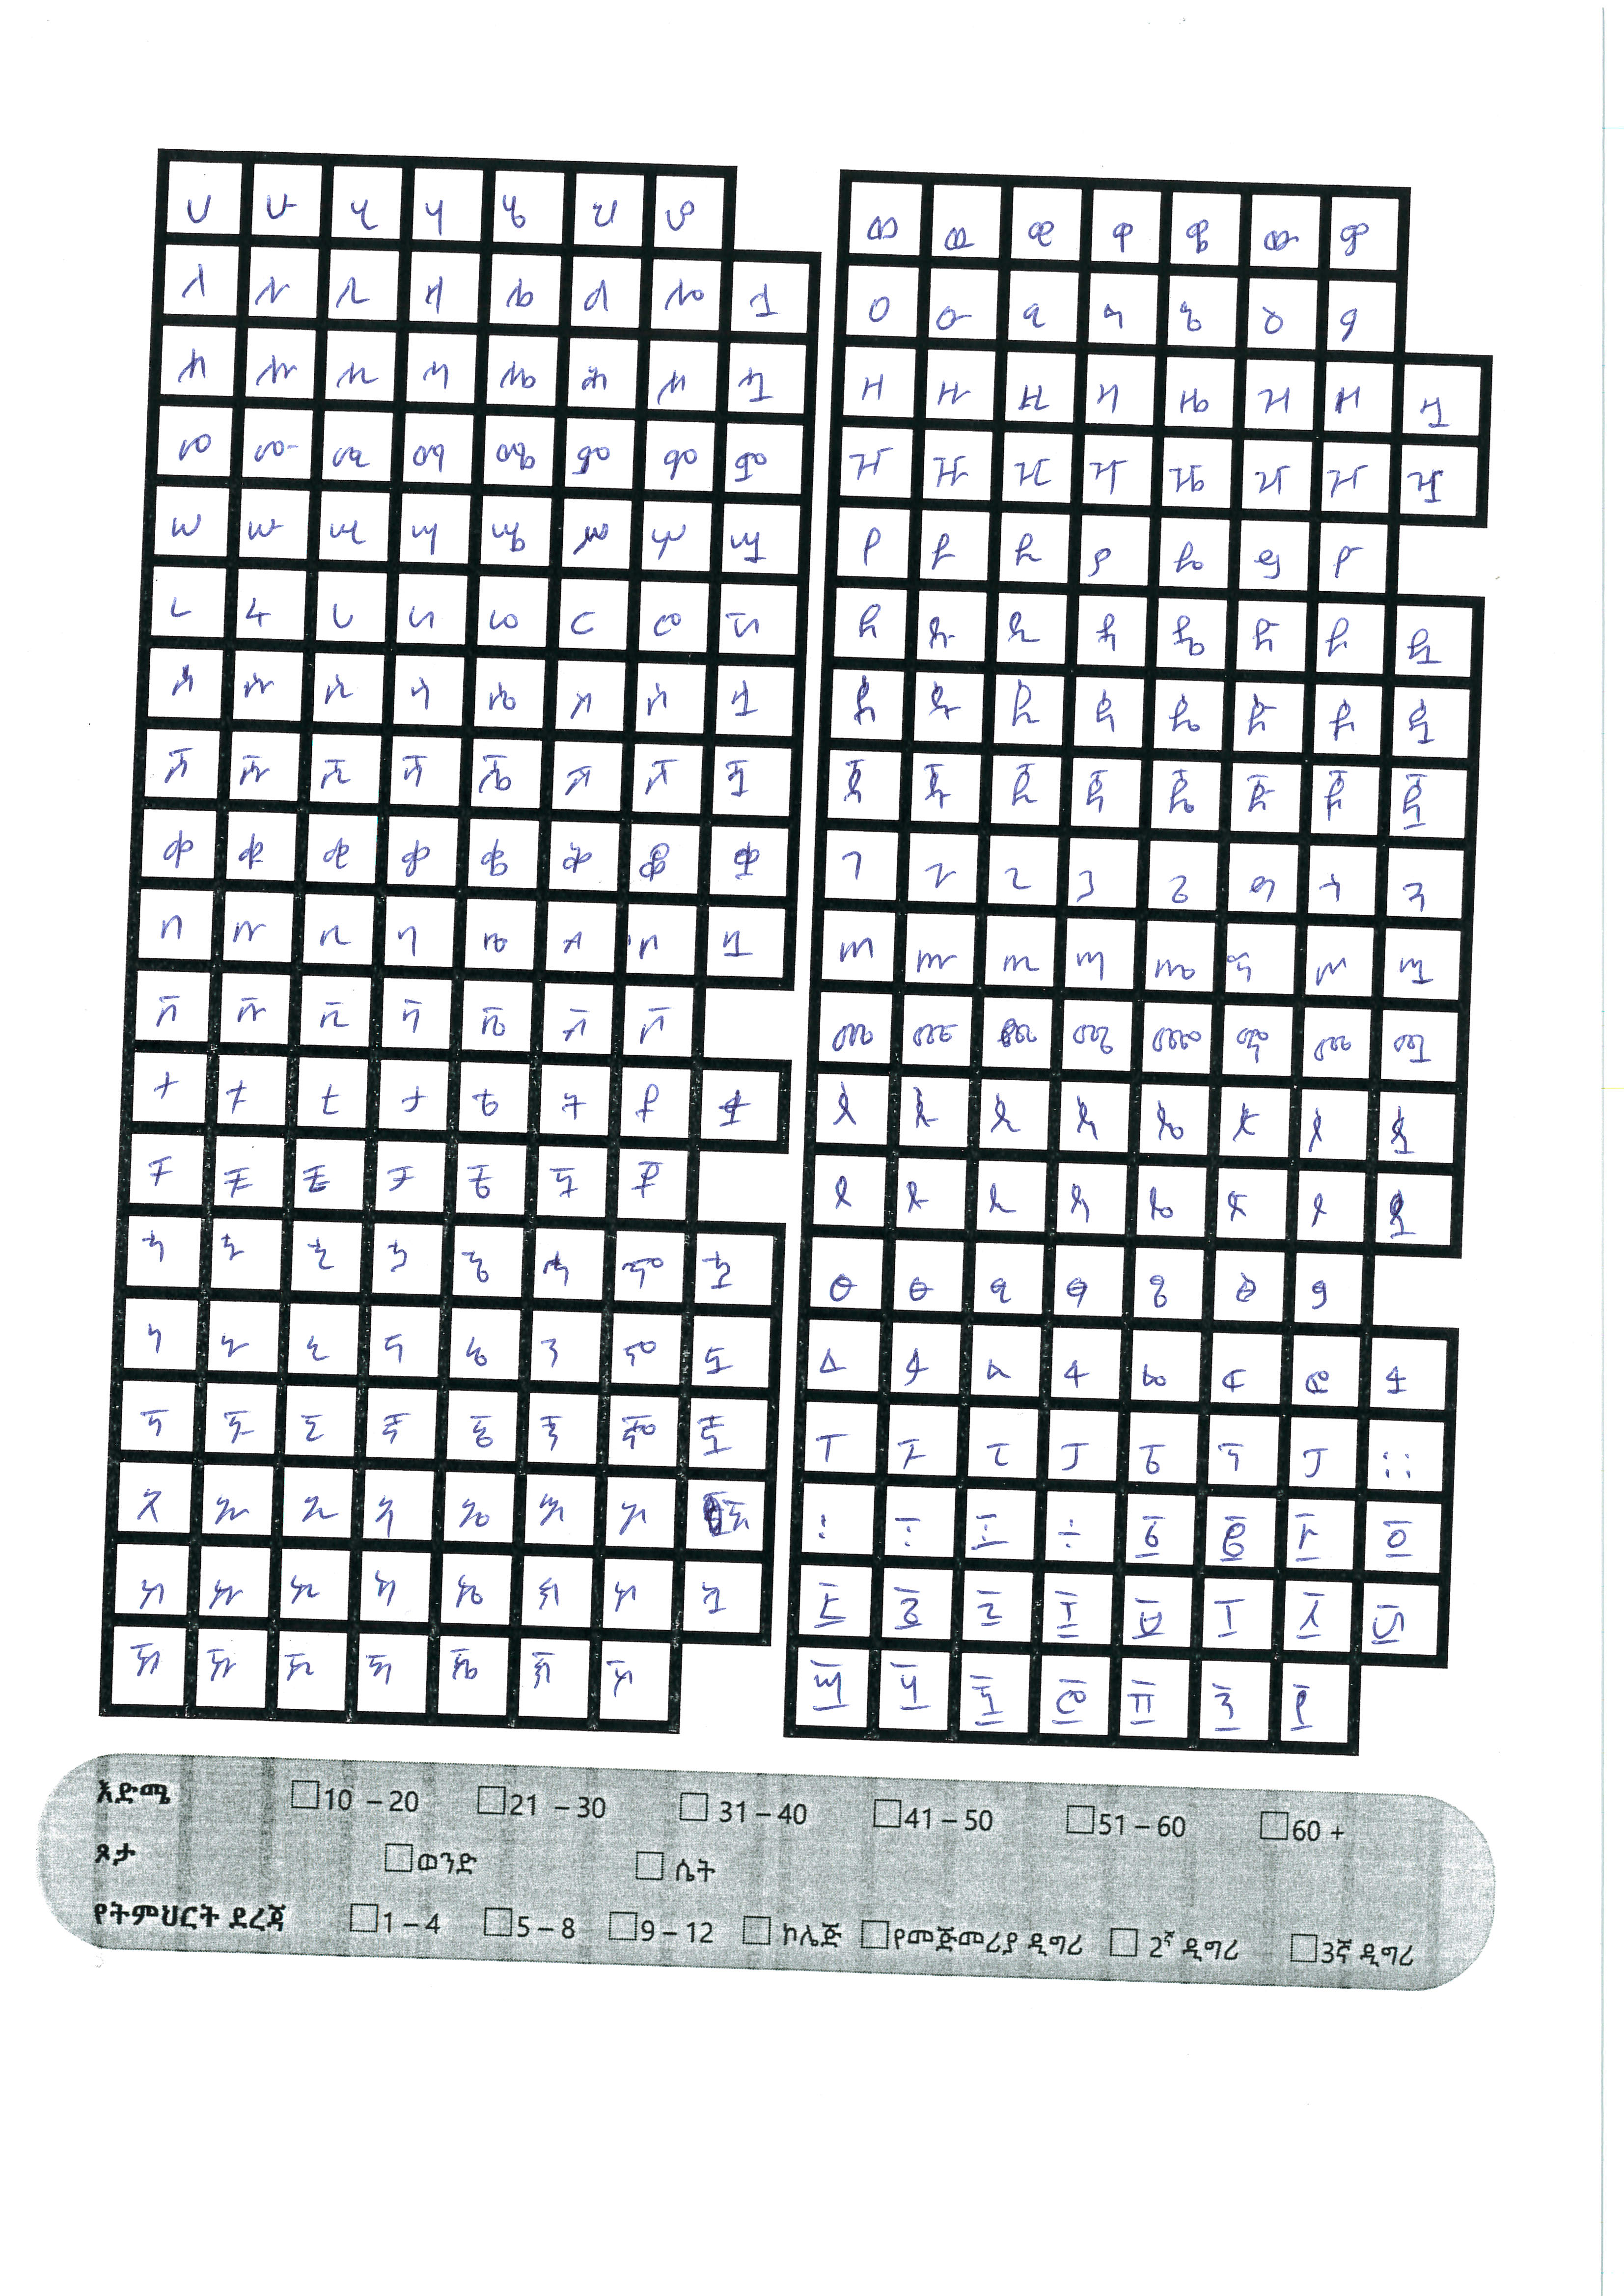 ሀ ሁ ሂ ሃ ሄ ህ ሆ
ለ ሉ ሊ ላ ሌ ል ሎ ሏ
ሐ ሑ ሒ ሓ ሔ ሕ ሖ ሗ
መ ሙ ሚ ማ ሜ ም ሞ ሟ
ሠ ሡ ሢ ሣ ሤ ሥ ሦ ሧ
ረ ሩ ሪ ራ ሬ ር ሮ ሯ
ሰ ሱ ሲ ሳ ሴ ስ ሶ ሷ
ሸ ሹ ሺ ሻ ሼ ሽ ሾ ሿ
ቀ ቁ ቂ ቃ ቄ ቅ ቆ ቋ
በ ቡ ቢ ባ ቤ ብ ቦ ቧ
ቨ ቩ ቪ ቫ ቬ ቭ ቮ
ተ ቱ ቲ ታ ቴ ት ቶ ቷ
ቸ ቹ ቺ ቻ ቼ ች ቾ
ኀ ኁ ኂ ኃ ኄ ኅ ኆ ኋ
ነ ኑ ኒ ና ኔ ን ኖ ኗ
ኘ ኙ ኚ ኛ ኜ ኝ ኞ ኟ
አ ኡ ኢ ኣ ኤ እ ኦ ኧ
ከ ኩ ኪ ካ ኬ ክ ኮ ኳ
ኸ ኹ ኺ ኻ ኼ ኽ ኾ
ወ ዉ ዊ ዋ ዌ ው ዎ
ዐ ዑ ዒ ዓ ዔ ዕ ዖ
ዘ ዙ ዚ ዛ ዜ ዝ ዞ ዟ
ዠ ዡ ዢ ዣ ዤ ዥ ዦ ዧ
የ ዩ ዪ ያ ዬ ይ ዮ
ደ ዱ ዲ ዳ ዴ ድ ዶ ዷ
ዸ ዹ ዺ ዻ ዼ ዽ ዾ ዿ
ጀ ጁ ጂ ጃ ጄ ጅ ጆ ጇ
ገ ጉ ጊ ጋ ጌ ግ ጎ ጓ
ጠ ጡ ጢ ጣ ጤ ጥ ጦ ጧ
ጨ ጩ ጪ ጫ ጬ ጭ ጮ ጯ
ጰ ጱ ጲ ጳ ጴ ጵ ጶ ጷ
ጸ ጹ ጺ ጻ ጼ ጽ ጾ ጿ
ፀ ፁ ፂ ፃ ፄ ፅ ፆ
ፈ ፉ ፊ ፋ ፌ ፍ ፎ ፏ
ፐ ፑ ፒ ፓ ፔ ፕ ፖ ።
፡ ፣ ፤ ÷ ፩ ፪ ፫ ፬
፭ ፮ ፯ ፰ ፱ ፲ ፳ ፴
፵ ፶ ፷ ፸ ፹ ፺ ፻
እድሜ 10 – 20 21 – 30 31 – 40 41 – 50 51 – 60 60 +
ጾታ ወንድ ሴት
የትምህርት ደረጃ 1 – 4 5 – 8 9 – 12 ኮሌጅ የመጅመሪያ ዲግሪ 2ኛ ዲግሪ 3ኛ ዲግሪ